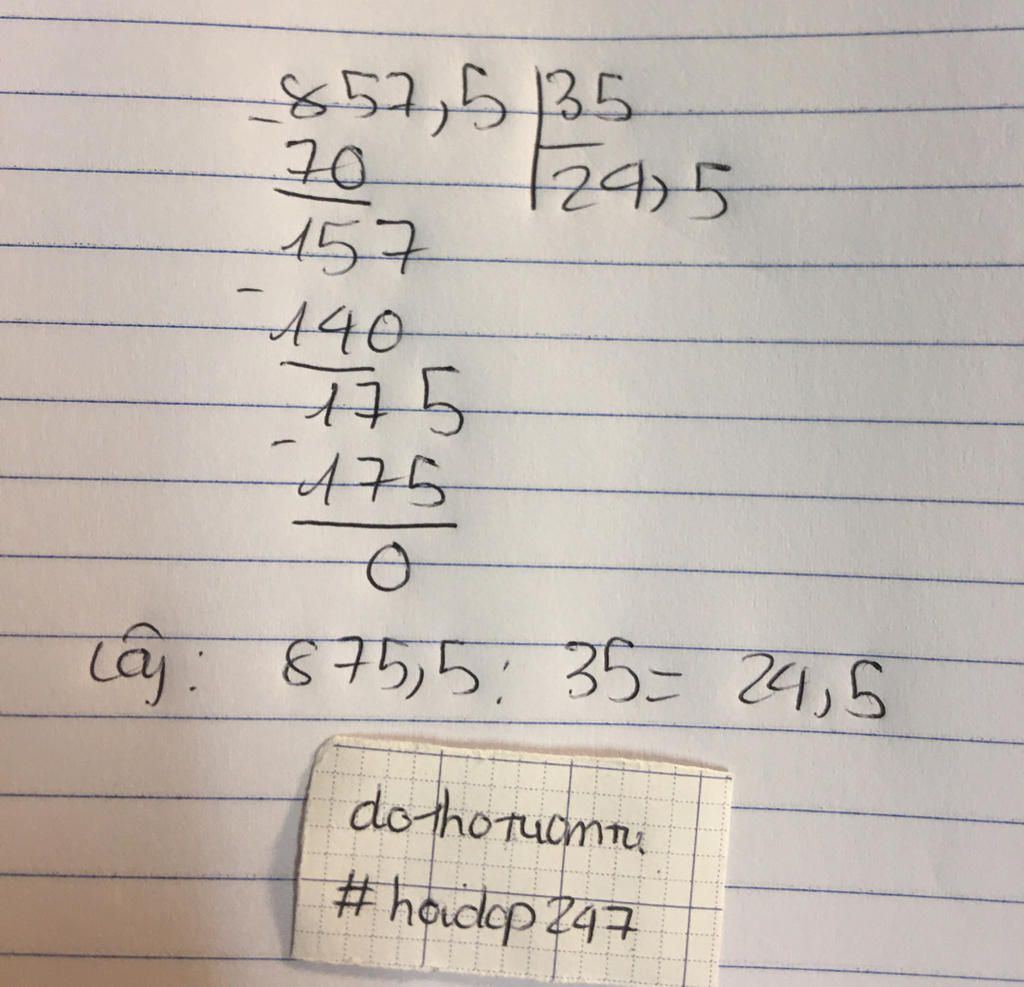 857,5 35
70 24,5
157
- 140
175
- 175
0
875,5: 35= 24,5
#hoidap247